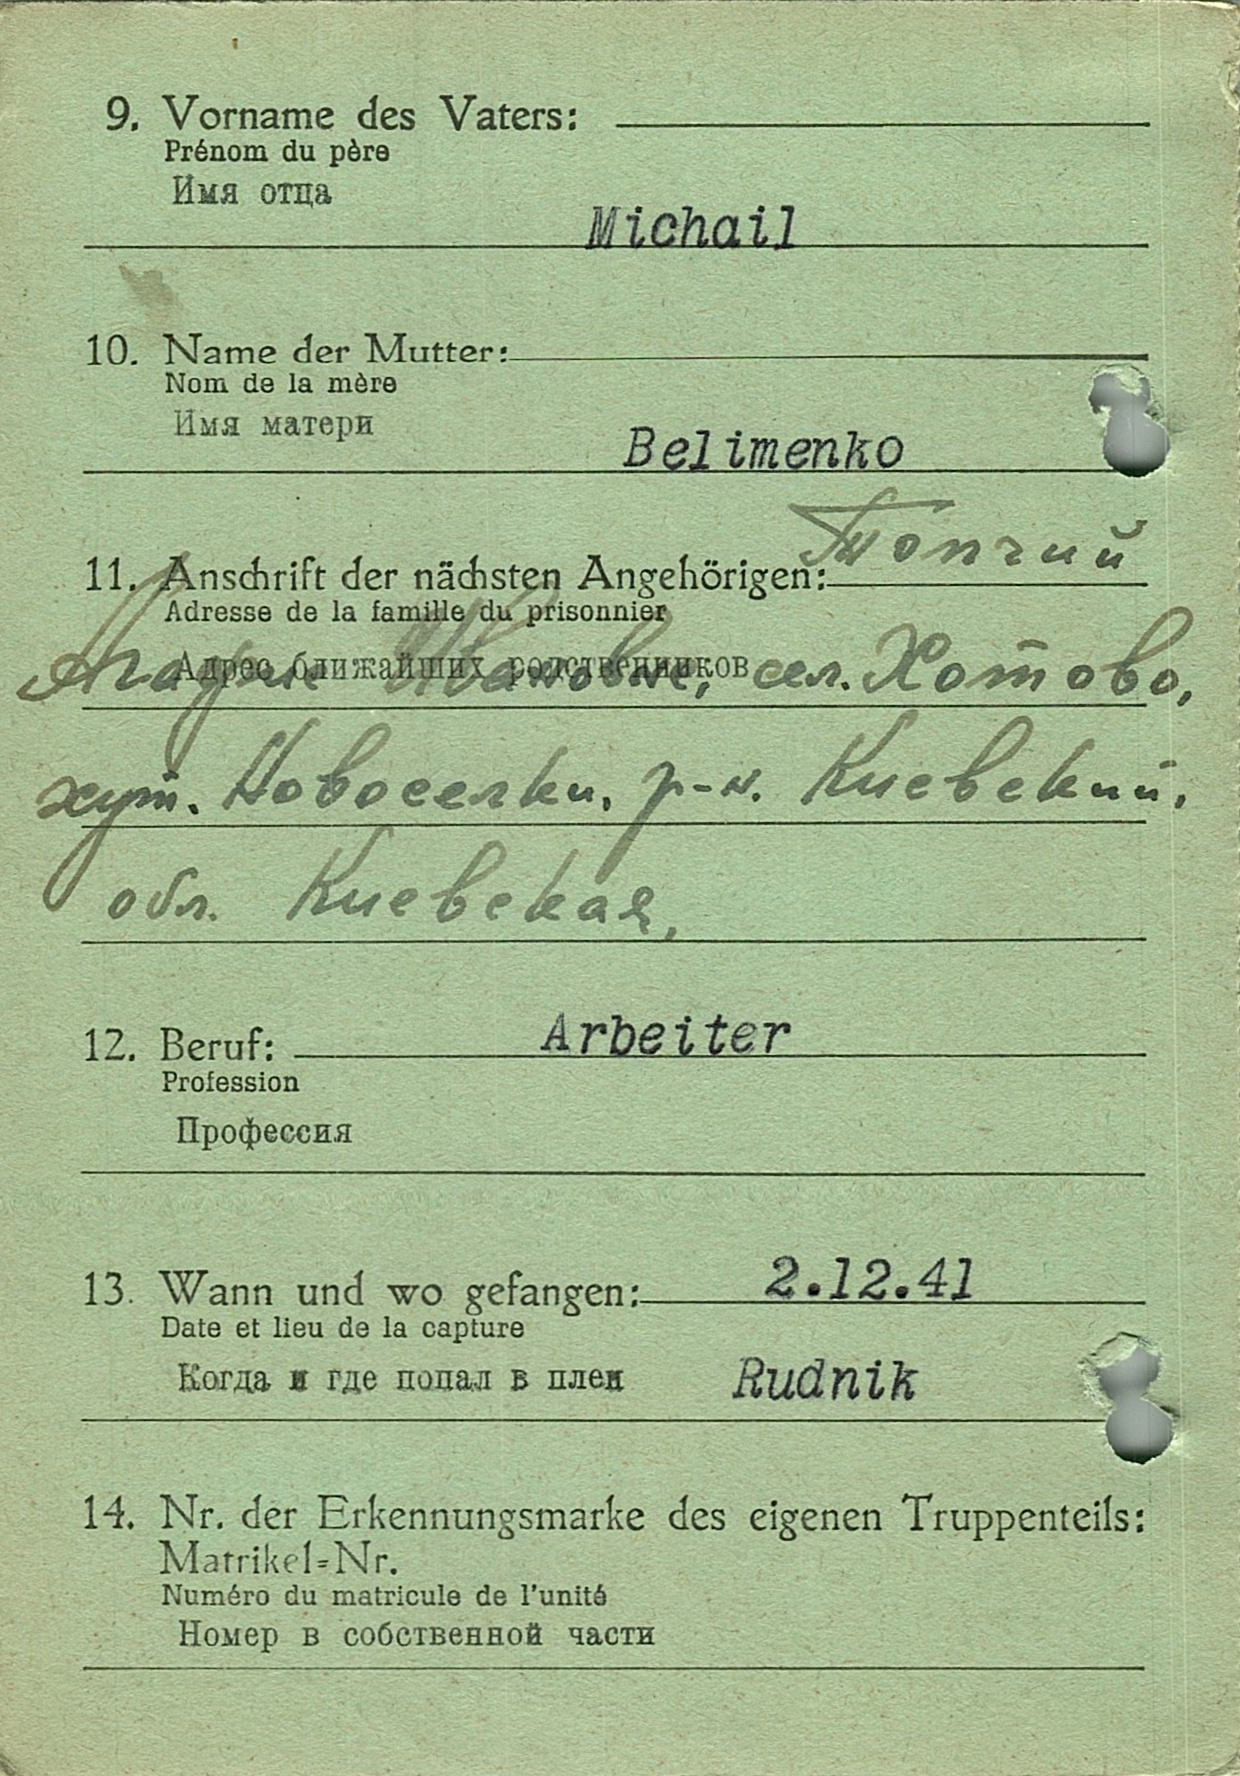 9. Vorname des Vaters:
Prénom du père
Имя отца
Michail
10. Name der Mutter:
Nom de la mère
Имя матери
Belimenko
Топчий
11. Anschrift der nächsten Angehörigen:
Adresse de la famille du prisonnier
Адрес ближайших родственников
Ивановне, сел. Хотово,
хут. Новоселки, р-н. Киевский,
обл. Киевская,
12. Beruf: Arbeiter
Profession
Профессия
13. Wann und wo gefangen: 2.12.41
Date et lieu de la capture
Когда и где попал в плен Rudnik
14. Nr. der Erkennungsmarke des eigenen Truppenteils:
Matrikel=Nr.
Numéro du matricule de l'unité
Номер в собственной части